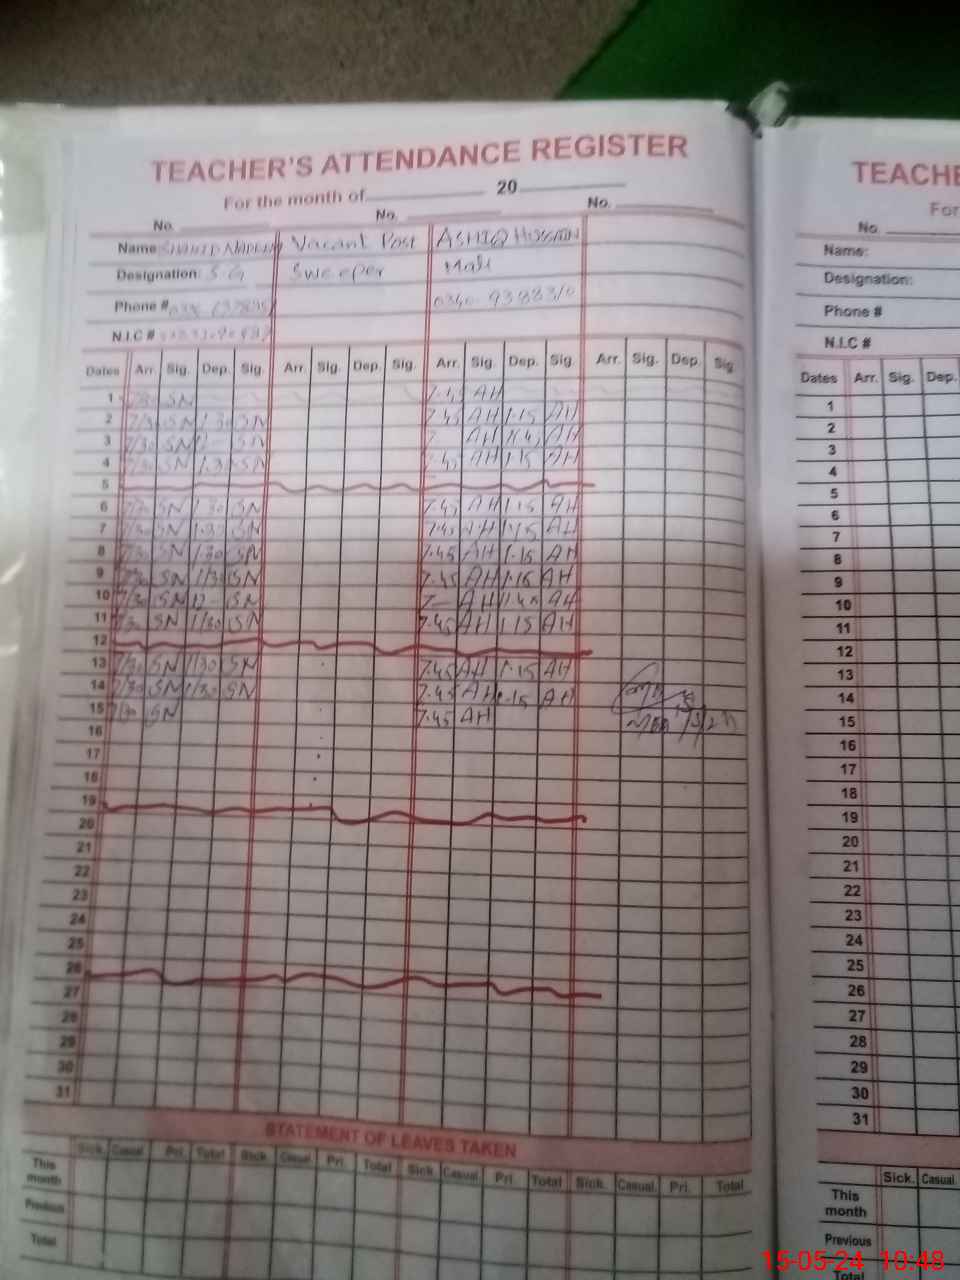 TEACHER'S ATTENDANCE REGISTER
For the month of 20
No. No. No.
Name: Vacant Post ASHIQ HUSSAIN
Designation: S.G Sweeper Mali
Phone #
N.I.C #
Dates Arr. Sig. Dep. Sig. Arr. Sig. Dep. Sig. Arr. Sig. Dep. Sig. Arr. Sig. Dep. Sig.
1 SN 7.45 AH
2 7/30 SN 1.30 SN 7.45 AH 1.15 AH
3 7/30 SN SN AH AH
4 7/30 SN 1.3 SN AH 1.15 AH
5
6 7/30 SN 1.30 SN 7.45 AH 1.15 AH
7 7/30 SN 1.30 SN 7.45 AH 1.15 AH
8 7/30 SN 1.30 SN 7.45 AH 1.15 AH
9 7/30 SN 1/30 SN 7.45 AH 1.15 AH
10 7/30 SN 12 - SN 7 - AH AH
11 7/30 SN 1/30 SN 7.45 AH 1.15 AH
12
13 7/30 SN 1/30 SN 7.45 AH 1.15 AH
14 7/30 SN 1/30 SN 7.45 AH 1.15 AH
15 7/30 SN 7.45 AH
16
17
18
19
20
21
22
23
24
25
26
27
28
29
30
31
STATEMENT OF LEAVES TAKEN
Sick. Casual Pri. Total Sick. Casual. Pri. Total Sick. Casual Pri. Total Sick. Casual. Pri. Total
This month
Previous
Total
TEACHE
For
No.
Name:
Designation:
Phone #
N.I.C #
Dates Arr. Sig. Dep.
1
2
3
4
5
6
7
8
9
10
11
12
13
14
15
16
17
18
19
20
21
22
23
24
25
26
27
28
29
30
31
Sick. Casual
This month
Previous
Total
15-05-24 10:48